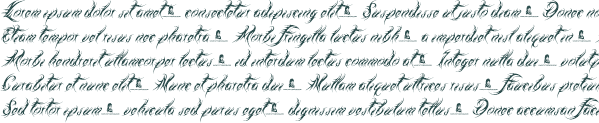 Lorem ipsum dolor sit amet consectetur adipiscing elit Suspendisse ut justo diam Donec no
Etiam tempor vel risus nec pharetra Morbi fringilla luctus nibh a imperdiet nisl aliquet in
Morbi hendrerit ullamcorper lectus ed interdum lectus commodo at Integer nulla dui volutp
Curabitur et nunc elit Nunc et pharetra dui Nullam aliquet ultrices risus Faucibus pretium
Sed tortor ipsum vehicula sed purus eget dignissim vestibulum tellus Donec accumsan